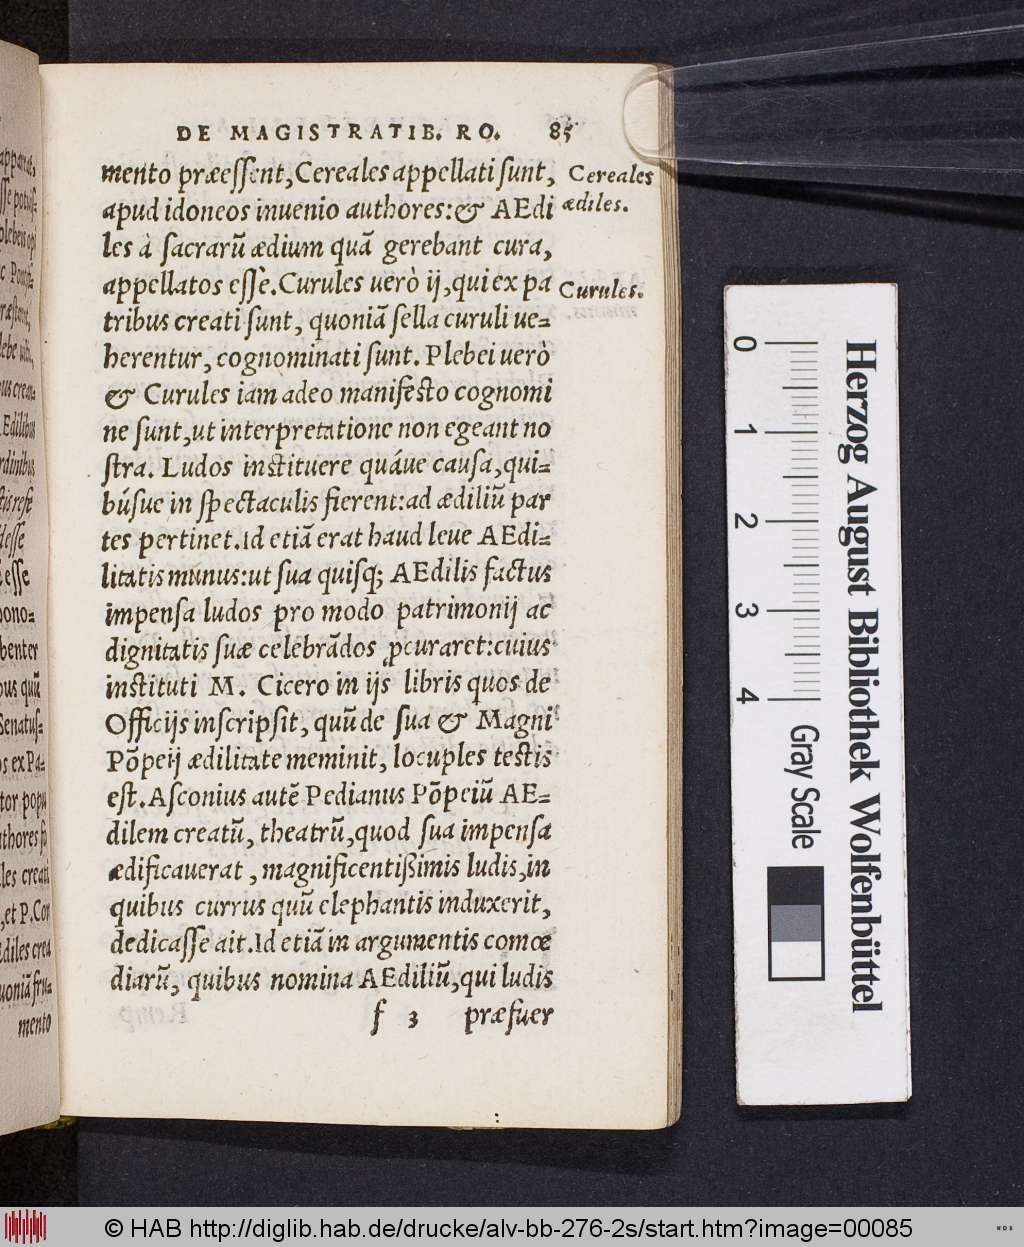 DE MAGISTRATIB. RO. 85
mento præessent, Cereales appellati sunt,
Cereales
apud idoneos inuenio authores: & AEdi
ædiles.
les à sacrarũ ædium quã gerebant cura,
appellatos esse. Curules uerò ij, qui ex pa
Curules.
tribus creati sunt, quoniã sella curuli ue=
herentur, cognominati sunt. Plebei uerò
& Curules iam adeo manifesto cognomi
ne sunt, ut interpretatione non egeant no
stra. Ludos instituere quáue causa, qui=
búsue in spectaculis fierent: ad ædiliũ par
tes pertinet. Id etiã erat haud leue AEdi=
litatis munus: ut sua quisq; AEdilis factus
impensa ludos pro modo patrimonij ac
dignitatis suæ celebrãdos ꝓcuraret: cuius
instituti M. Cicero in ijs libris quos de
Officijs inscripsit, quũ de sua & Magni
Põpeij ædilitate meminit, locuples testis
est. Asconius autẽ Pedianus Põpeiũ AE=
dilem creatũ, theatrũ, quod sua impensa
ædificauerat, magnificentißimis ludis, in
quibus currus quũ elephantis induxerit,
dedicasse ait. Id etiã in argumentis comœ
diarũ, quibus nomina AEdiliũ, qui ludis
f 3 præfuer
esse
benter
Senatus=
mento
0 1 2 3 4
Gray Scale
Herzog August Bibliothek Wolfenbüttel
© HAB http://diglib.hab.de/drucke/alv-bb-276-2s/start.htm?image=00085